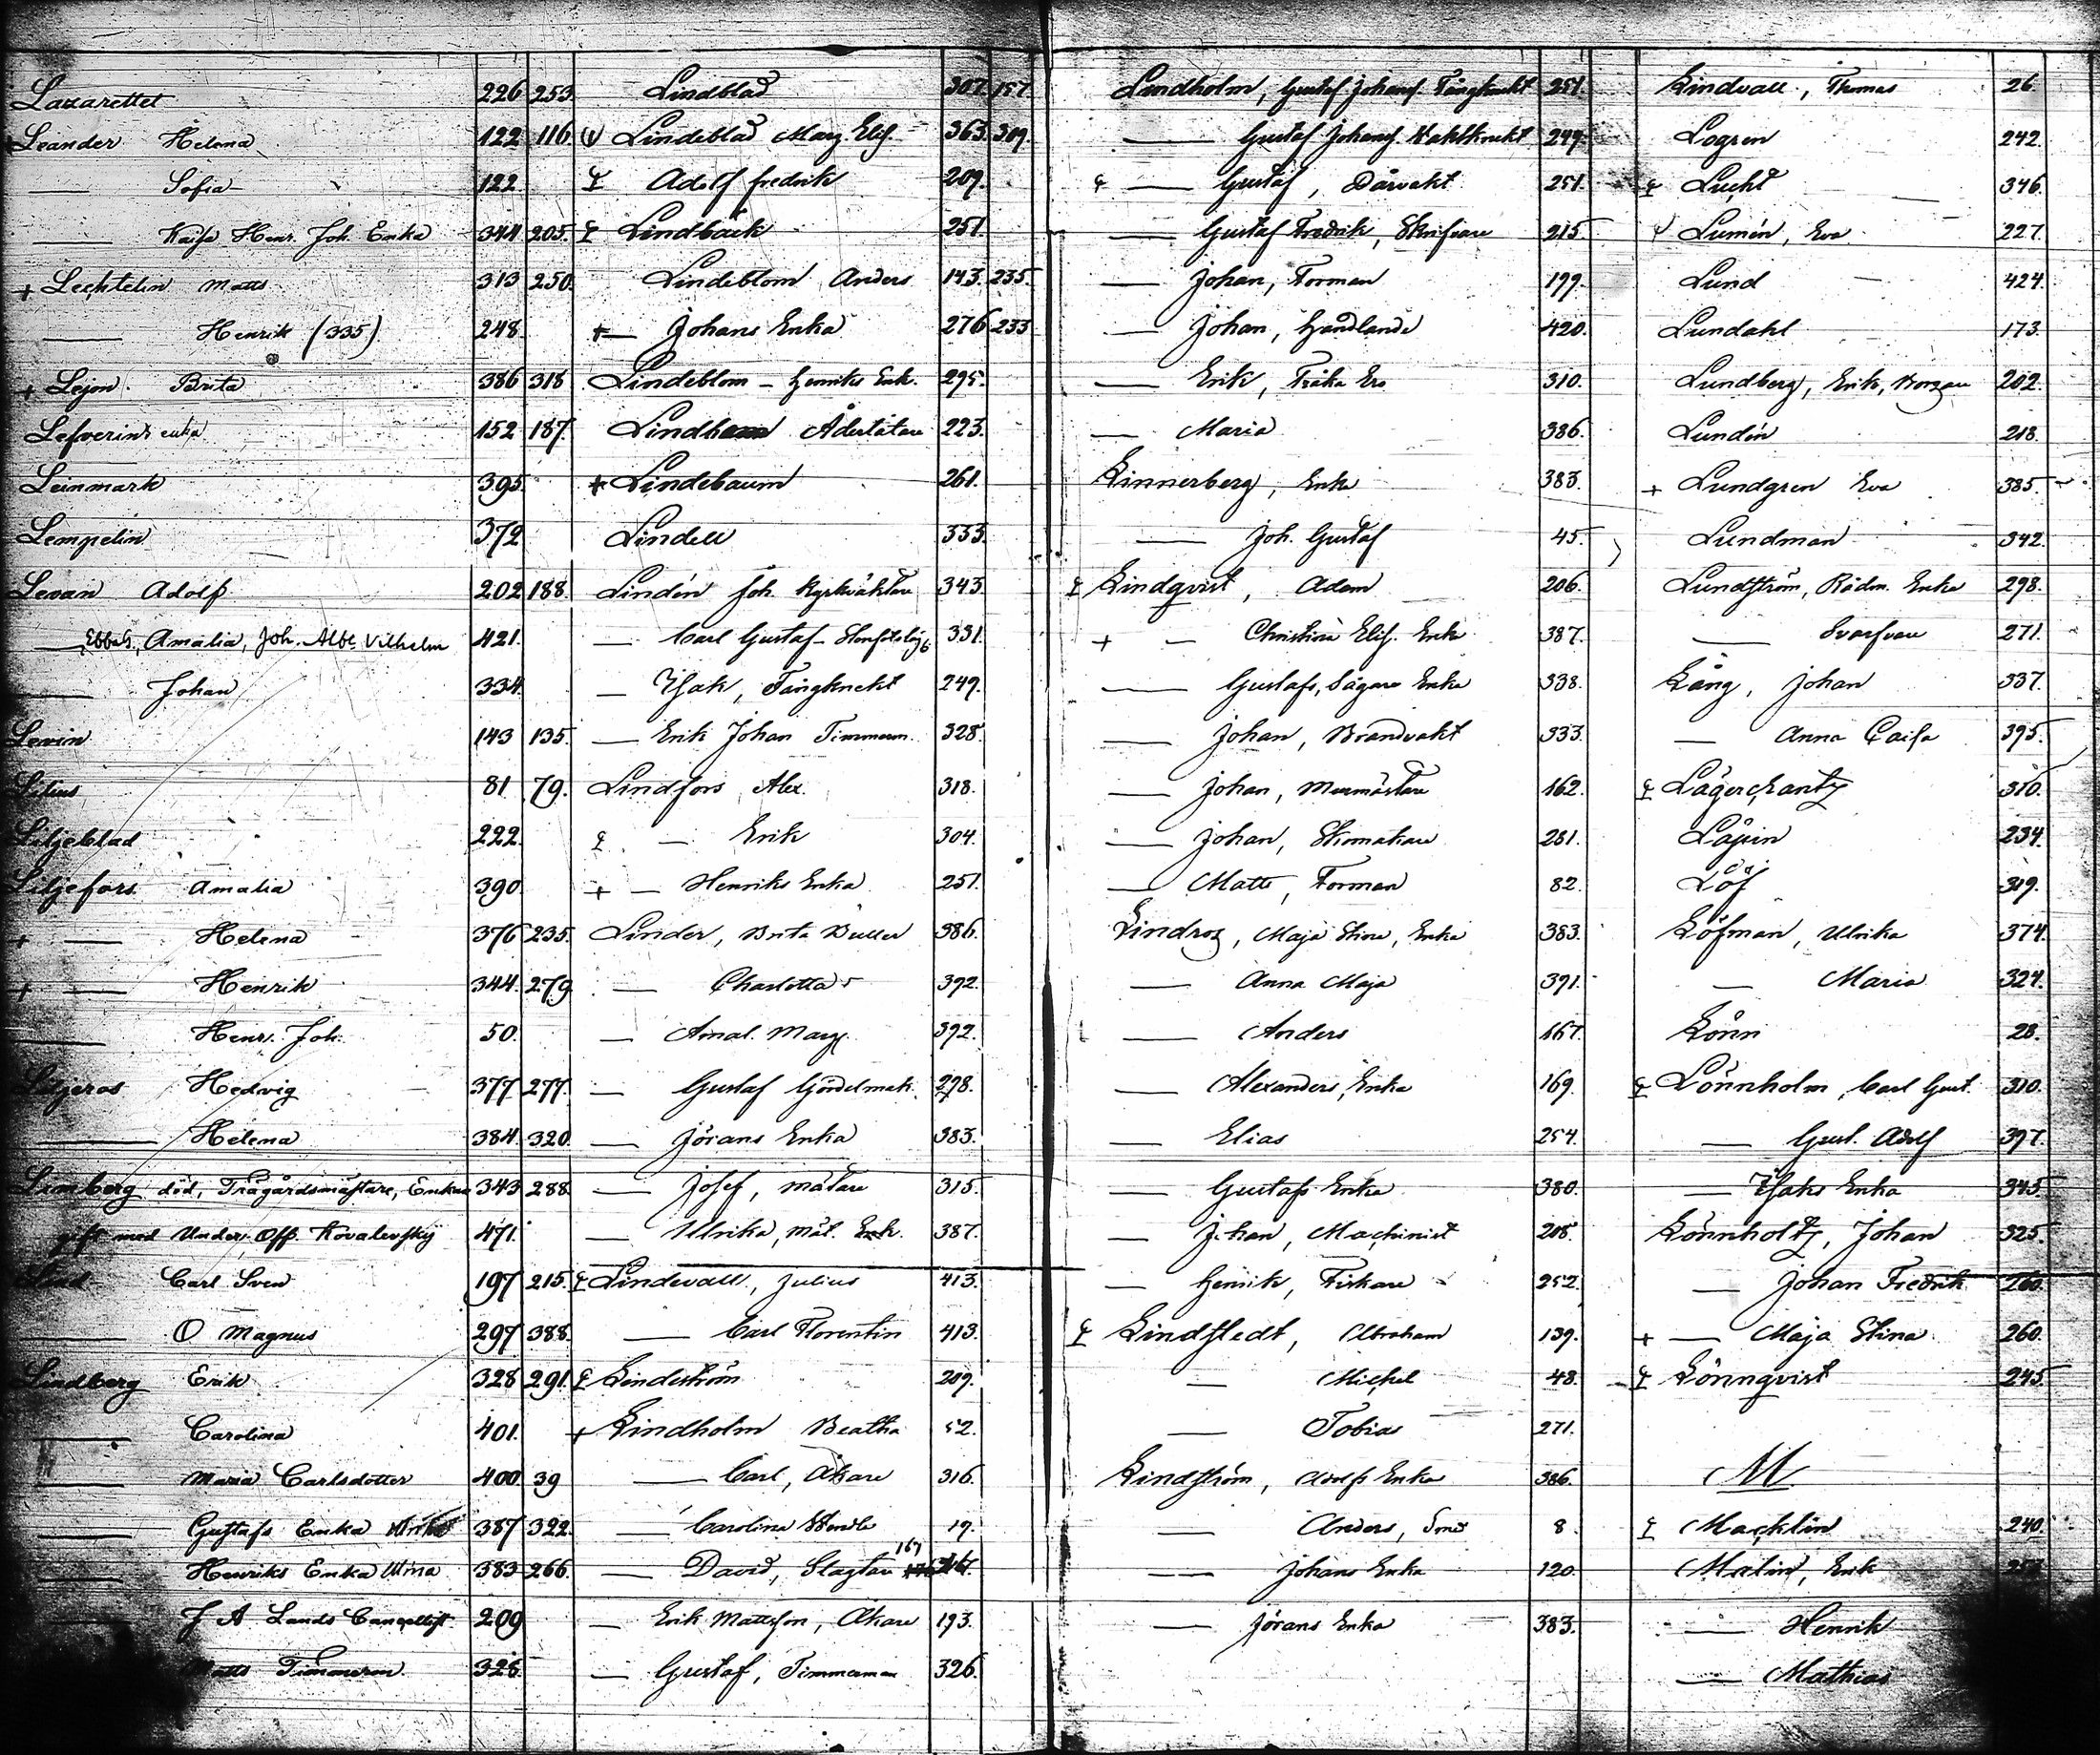 Lazarettet 226 253
Leander Helena 122 116
— Sofia 122
— Kaisa Henr. Joh. Enka 344 205.
+ Lechtelin Matts 313 250
— Henrik (335) 248.
+ Lejon. Brita 386 318
Lefverins enka 152 187.
Leinmark 395.
Lempelin 372
Levan Adolf 202 188.
— Ebba S, Amalia, Joh. Albt. Vilhelm 421.
— Johan 334.
Levin 143 135.
Lilius 81 79.
Liljeblad 222.
Liljefors Amalia 390
+ — Helena 376 235.
+ — Henrik 344. 279
— Henr. Joh. 50.
Liljeros Hedvig 377 277.
— Helena 384. 320.
Limberg död, Trägårdsmästare, Enka 343 288.
gift med Under. Off. Kovalevskij 471.
Lind Carl Sven 197 215.
— O Magnus 297 388.
Lindberg Erik 328 291.
— Carolina 401.
— Maria Carlsdotter 400 39
— Gustafs Enka 387 322.
— Henriks Enka Ulrica 383 266.
— J A Lands Cancellist 209
Matts Timmerm. 328.
Lindblad 307. 157.
Lindeblad Marg. Elis. 363. 309.
Adolf fredrik 209.
Lindbäck 251.
Lindeblom Anders 143. 235.
+ — Johans Enka 276 233
Lindeblom – Henriks Enk. 295.
Åderlåtare 223.
+ Lindebaum 261.
Lindell 333.
Lindén Joh. Kyrkväktare 343.
— Carl Gustaf 331.
— Isak, Fångknekt 249.
— Erik Johan Timmerm. 328.
Lindfors Alex. 318.
— Erik 304.
+ — Henriks Enka 251.
Linder, Brita 386.
— Charlotta 392.
— Amal. Marg. 392.
— Gustaf Gördelmak. 298.
— Jörans Enka 383.
— Josef, mätare 315.
— Ulrika, Mät. Enk. 387.
Lindevall, Julius 413.
— Carl Florentin 413.
Lindeström 209.
+ Lindholm Beatha 52.
— Carl, Åkare 316.
— Carolina 19.
— David, Slagtare 167
— Erik Mattsson, Åkare 193.
— Gustaf, Timmerman 326.
Lindholm, Gustaf Johansf. Fångknekt 251.
— Gustaf Johansf. Vaktknekt 249.
— Gustaf, Dårvakt 251.
— Gustaf Fredrik, Skrifvare 215.
— Johan, Forman 199.
— Johan, Handlande 420.
— Erik, 310.
— Maria 386.
Linnerberg, Enka 383.
— Joh. Gustaf 45.
Lindqvist, Adam 206.
+ — Christina Elis. Enk. 387.
— Gustafs, Sågare Enka 338.
— Johan, Brandvakt 333.
— Johan, Murmästare 162.
— Johan, Skomakare 281.
— Matts, Forman 82.
Lindroz, Maja Stina, Enka 383.
— Anna Maja 391.
— Anders 167.
— Alexanders, Enka 169.
— Elias 254.
— Gustafs Enka 380.
— Johan, Machinist 208.
— Henrik, Fiskare 252.
Lindstedt, Abraham 139.
— Michel 48.
— Tobias 271.
Lindström, Adolfs Enka 386.
— Anders, Smed 8.
— Johans Enka 120.
— Jörans Enka 383.
Lindvall, Thomas 26.
Logren 242.
Lucht 346.
Lumén, Eva 227.
Lund 424.
Lundahl 173.
Lundberg, Erik, 202.
Lundén 218.
+ Lundgren Eva 385.
Lundman 342.
Lundström, Rådm. Enka 298.
— Svarfvare 271.
Lång, Johan 337.
— Anna Caisa 395.
Lågercrantz 310.
234.
Löf 319.
Löfman, Ulrika 374.
— Maria 324.
Lönn 28.
Lönnholm, Carl Gust. 310.
— Gust. Adolf 397.
— Isaks Enka 345.
Lönnholtz, Johan 325.
— Johan Fredrik 260.
+ — Maja Stina 260.
Lönnqvist 245.
M
Macklin 240.
Malin, Erik
— Henrik
— Mathias